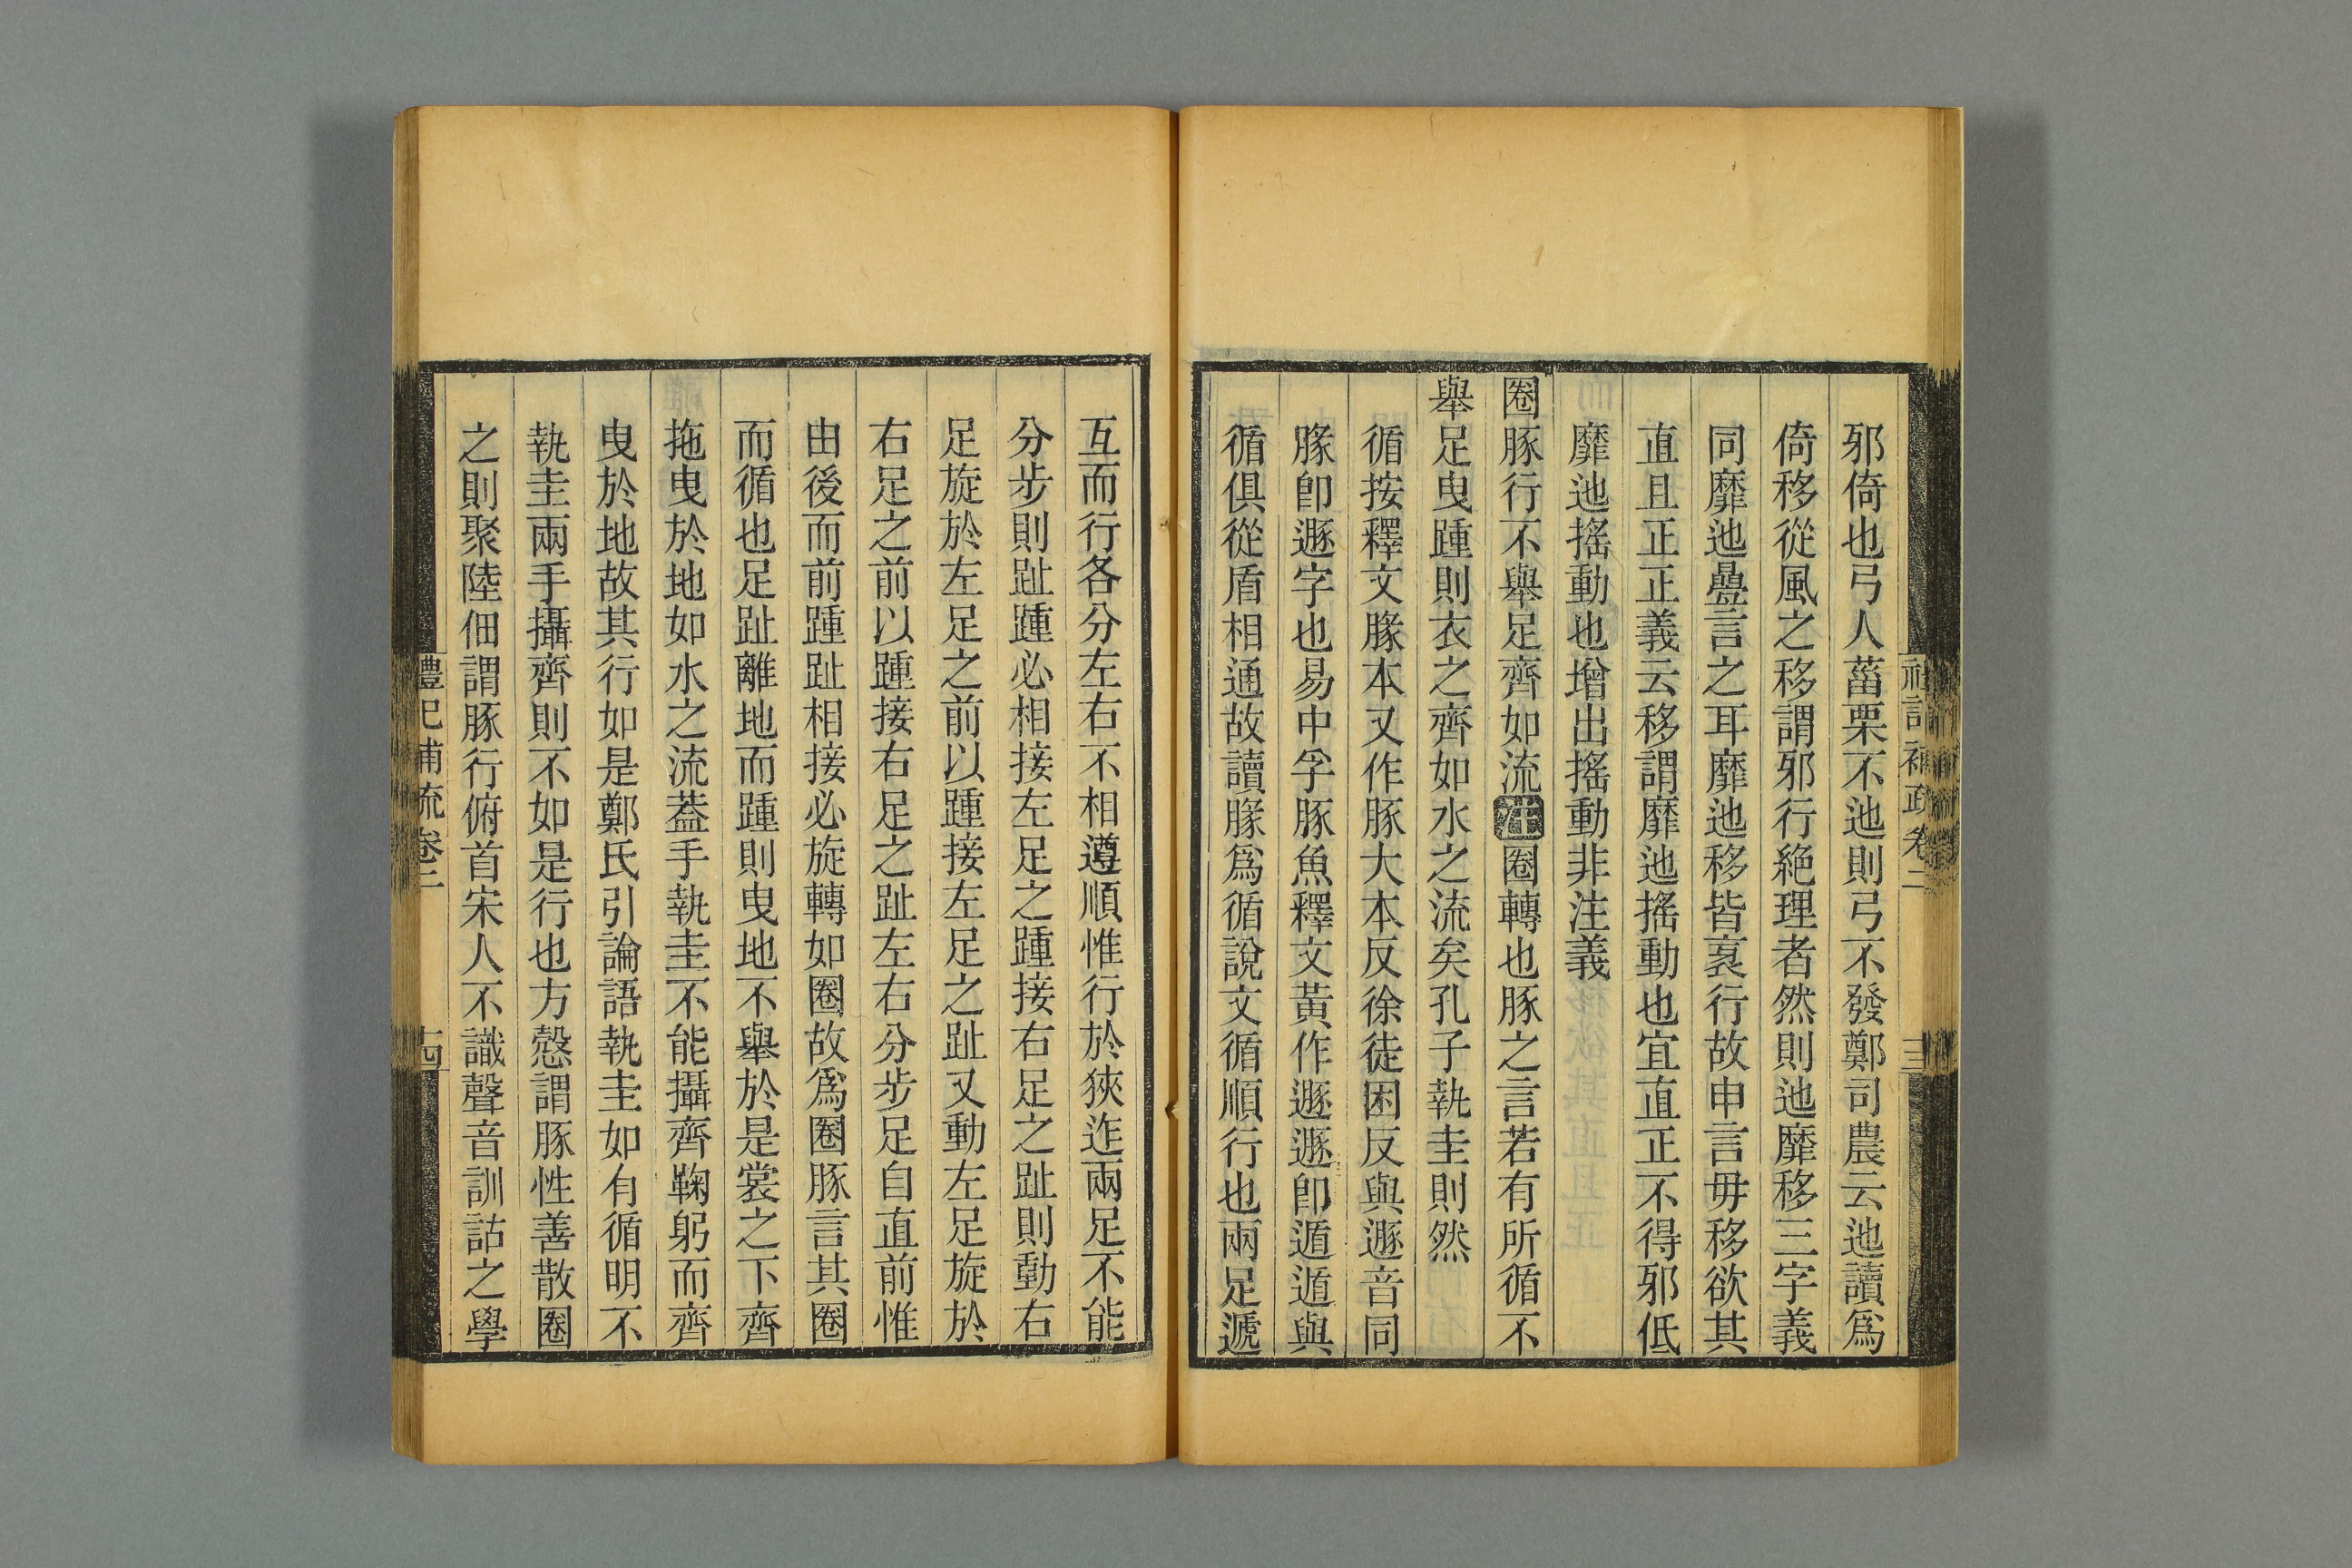 邪倚也弓人菑栗不迆則弓不發鄭司農云迆讀爲
倚移從風之移謂邪行絶理者然則迆靡移三字義
同靡迆曡言之耳靡迆移皆衺行故申言毋移欲其
直且正正義云移謂靡迆搖動也宜直正不得邪低
靡迆搖動也增出搖動非注義
圈豚行不舉足齊如流注圈轉也豚之言若有所循不
舉足曳踵則衣之齊如水之流矣孔子執圭則然
循按釋文豚本又作豚大本反徐徒困反與遯音同
豚卽遯字也易中孚豚魚釋文黃作遯遯卽遁遁與
循俱從盾相通故讀豚爲循說文循順行也兩足遞
禮記補疏卷二
互而行各分左右不相遵順惟行於狹迮兩足不能
分步則趾踵必相接左足之踵接右足之趾則動右
足旋於左足之前以踵接左足之趾又動左足旋於
右足之前以踵接右足之趾左右分步足自直前惟
由後而前踵趾相接必旋轉如圈故爲圈豚言其圈
而循也足趾離地而踵則曳地不舉於是裳之下齊
拖曳於地如水之流葢手執圭不能攝齊鞠躬而齊
曳於地故其行如是鄭氏引論語執圭如有循明不
執圭兩手攝齊則不如是行也方慤謂豚性善散圈
之則聚陸佃謂豚行俯首宋人不識聲音訓詁之學
禮記補疏卷二
十四